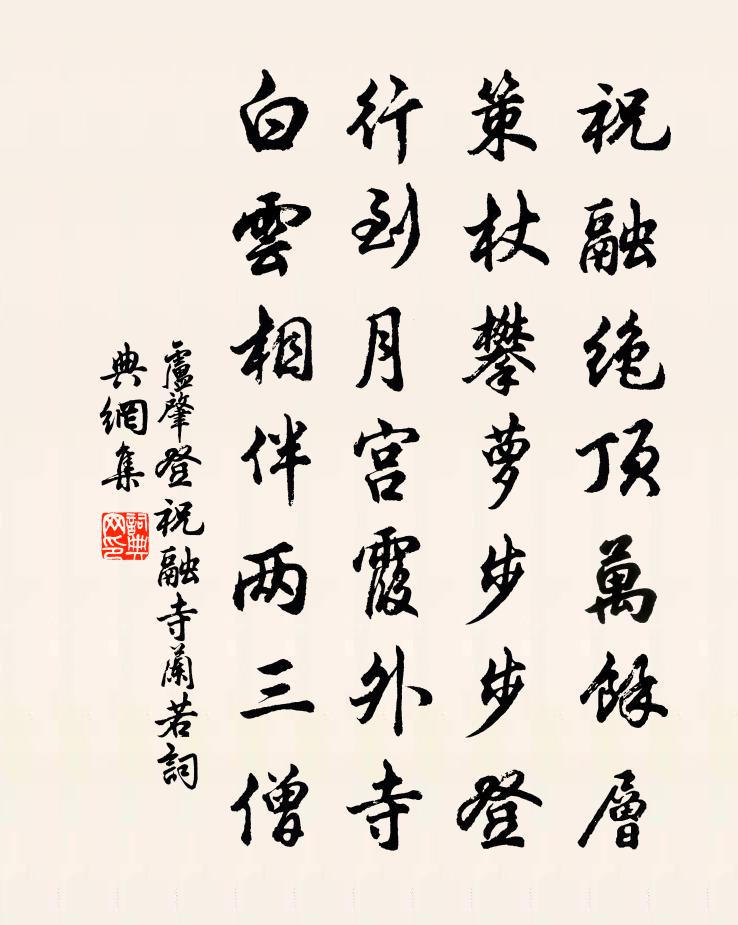 祝融绝顶萬餘層
策杖攀萝步步登
行到月宫霞外寺
白雲相伴两三僧
盧肇登祝融寺蘭若詞
典網集
詞典
网印